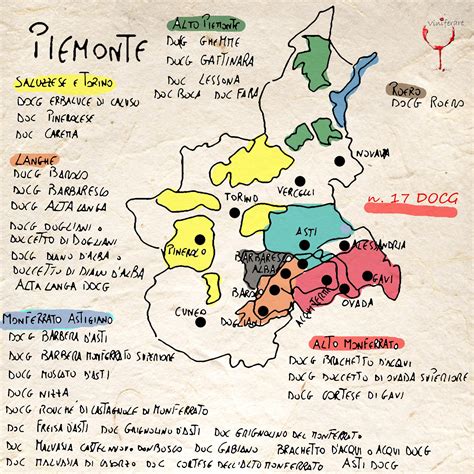 PIEMONTE
viniferare
ALTO PIEMONTE
DOCG GHEMME
DOCG GATTINARA
DOC LESSONA
DOC BOCA DOC FARA
SALUZZESE E TORINO
DOCG ERBALUCE DI CALUSO
DOC PINEROLESE
DOC CAREMA
ROERO
DOCG ROERO
LANGHE
DOCG BAROLO
DOCG BARBARESCO
DOCG ALTA LANGA
DOCG DOGLIANI O
DOLCETTO DI DOGLIANI
DOCG DIANO D'ALBA O
DOLCETTO DI DIANO D'ALBA
ALTA LANGA DOCG
n. 17 DOCG
NOVARA
VERCELLI
TORINO
ASTI
ALESSANDRIA
PINEROLO
BARBARESCO
ALBA
BAROLO
GAVI
CUNEO
DOGLIANI
ACQUI TERME
OVADA
MONFERRATO ASTIGIANO
DOCG BARBERA D'ASTI
DOCG BARBERA MONFERRATO SUPERIORE
DOCG MOSCATO D'ASTI
DOCG NIZZA
DOCG ROUCHÉ DI CASTAGNOLE DI MONFERRATO
DOC FREISA D'ASTI DOC GRIGNOLINO D'ASTI DOC GRIGNOLINO DEL MONFERRATO
DOC MALVASIA CASTELNUOVO DON BOSCO DOC GABIANO BRACHETTO D'ACQUI O ACQUI DOCG
DOC MALVASIA DI CASORZO DOC CORTESE DELL'ALTO MONFERRATO ASTI DOCG
ALTO MONFERRATO
DOCG BRACHETTO D'ACQUI
DOCG DOLCETTO DI OVADA SUPERIORE
DOCG CORTESE DI GAVI